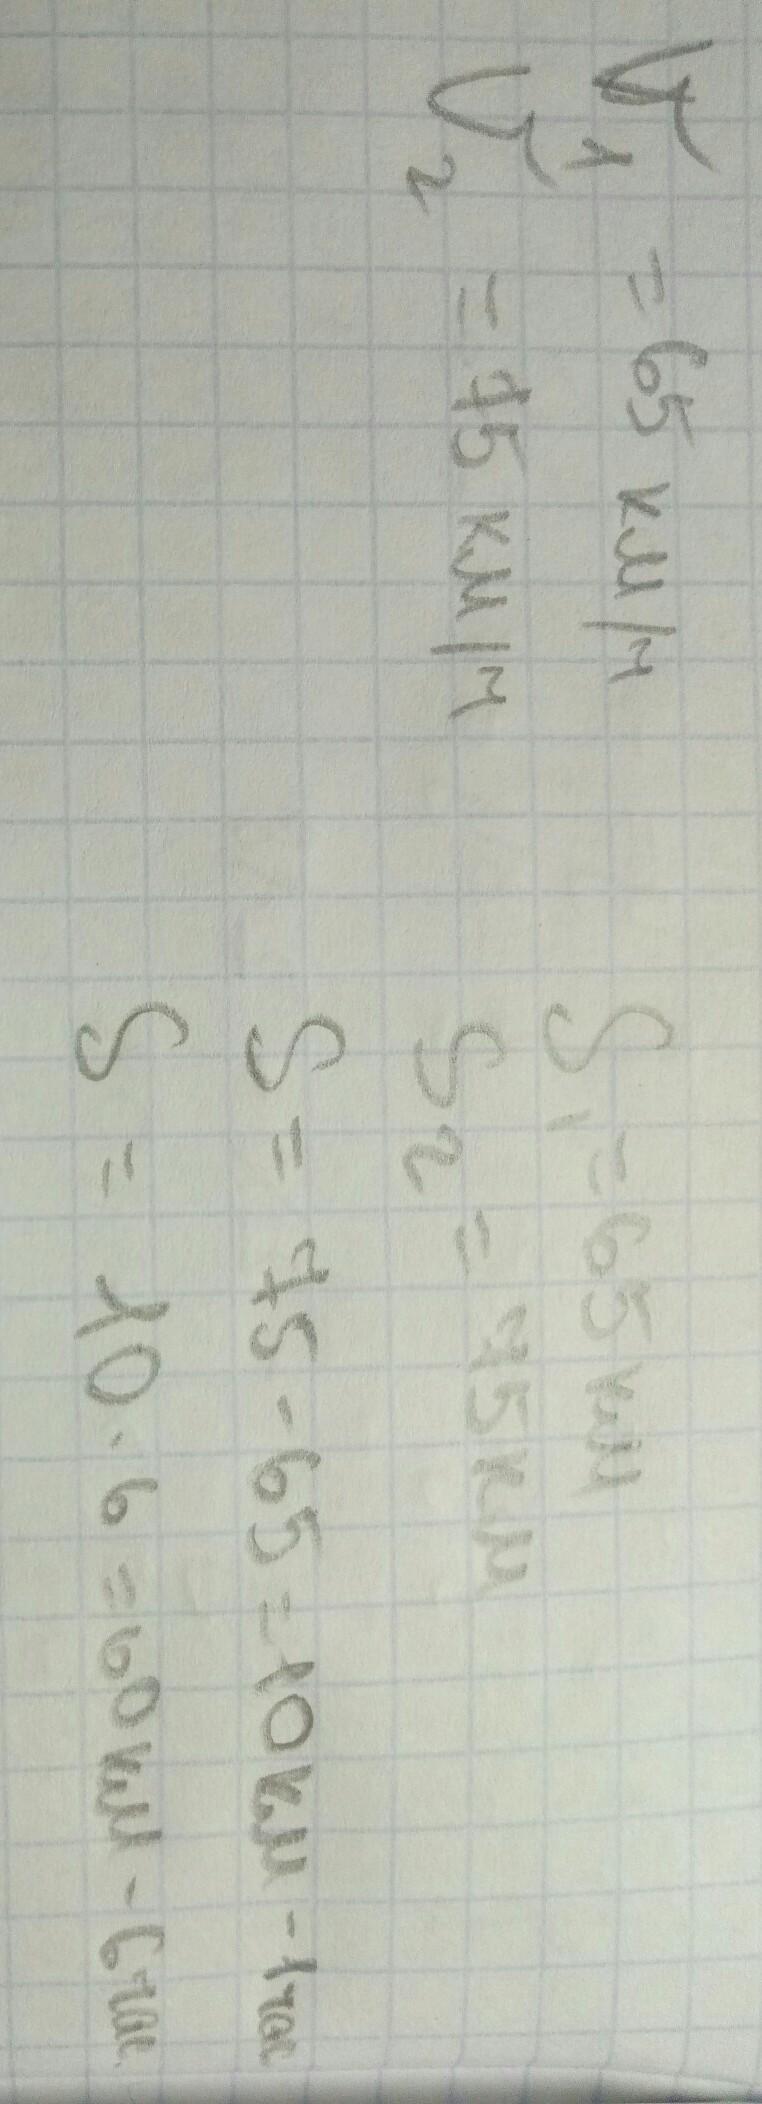 V₁ = 65 км/ч
V₂ = 75 км/ч
S₁ = 65 км
S₂ = 75 км
S = 75 - 65 = 10 км - 1 час
S = 10 · 6 = 60 км - 6 час.